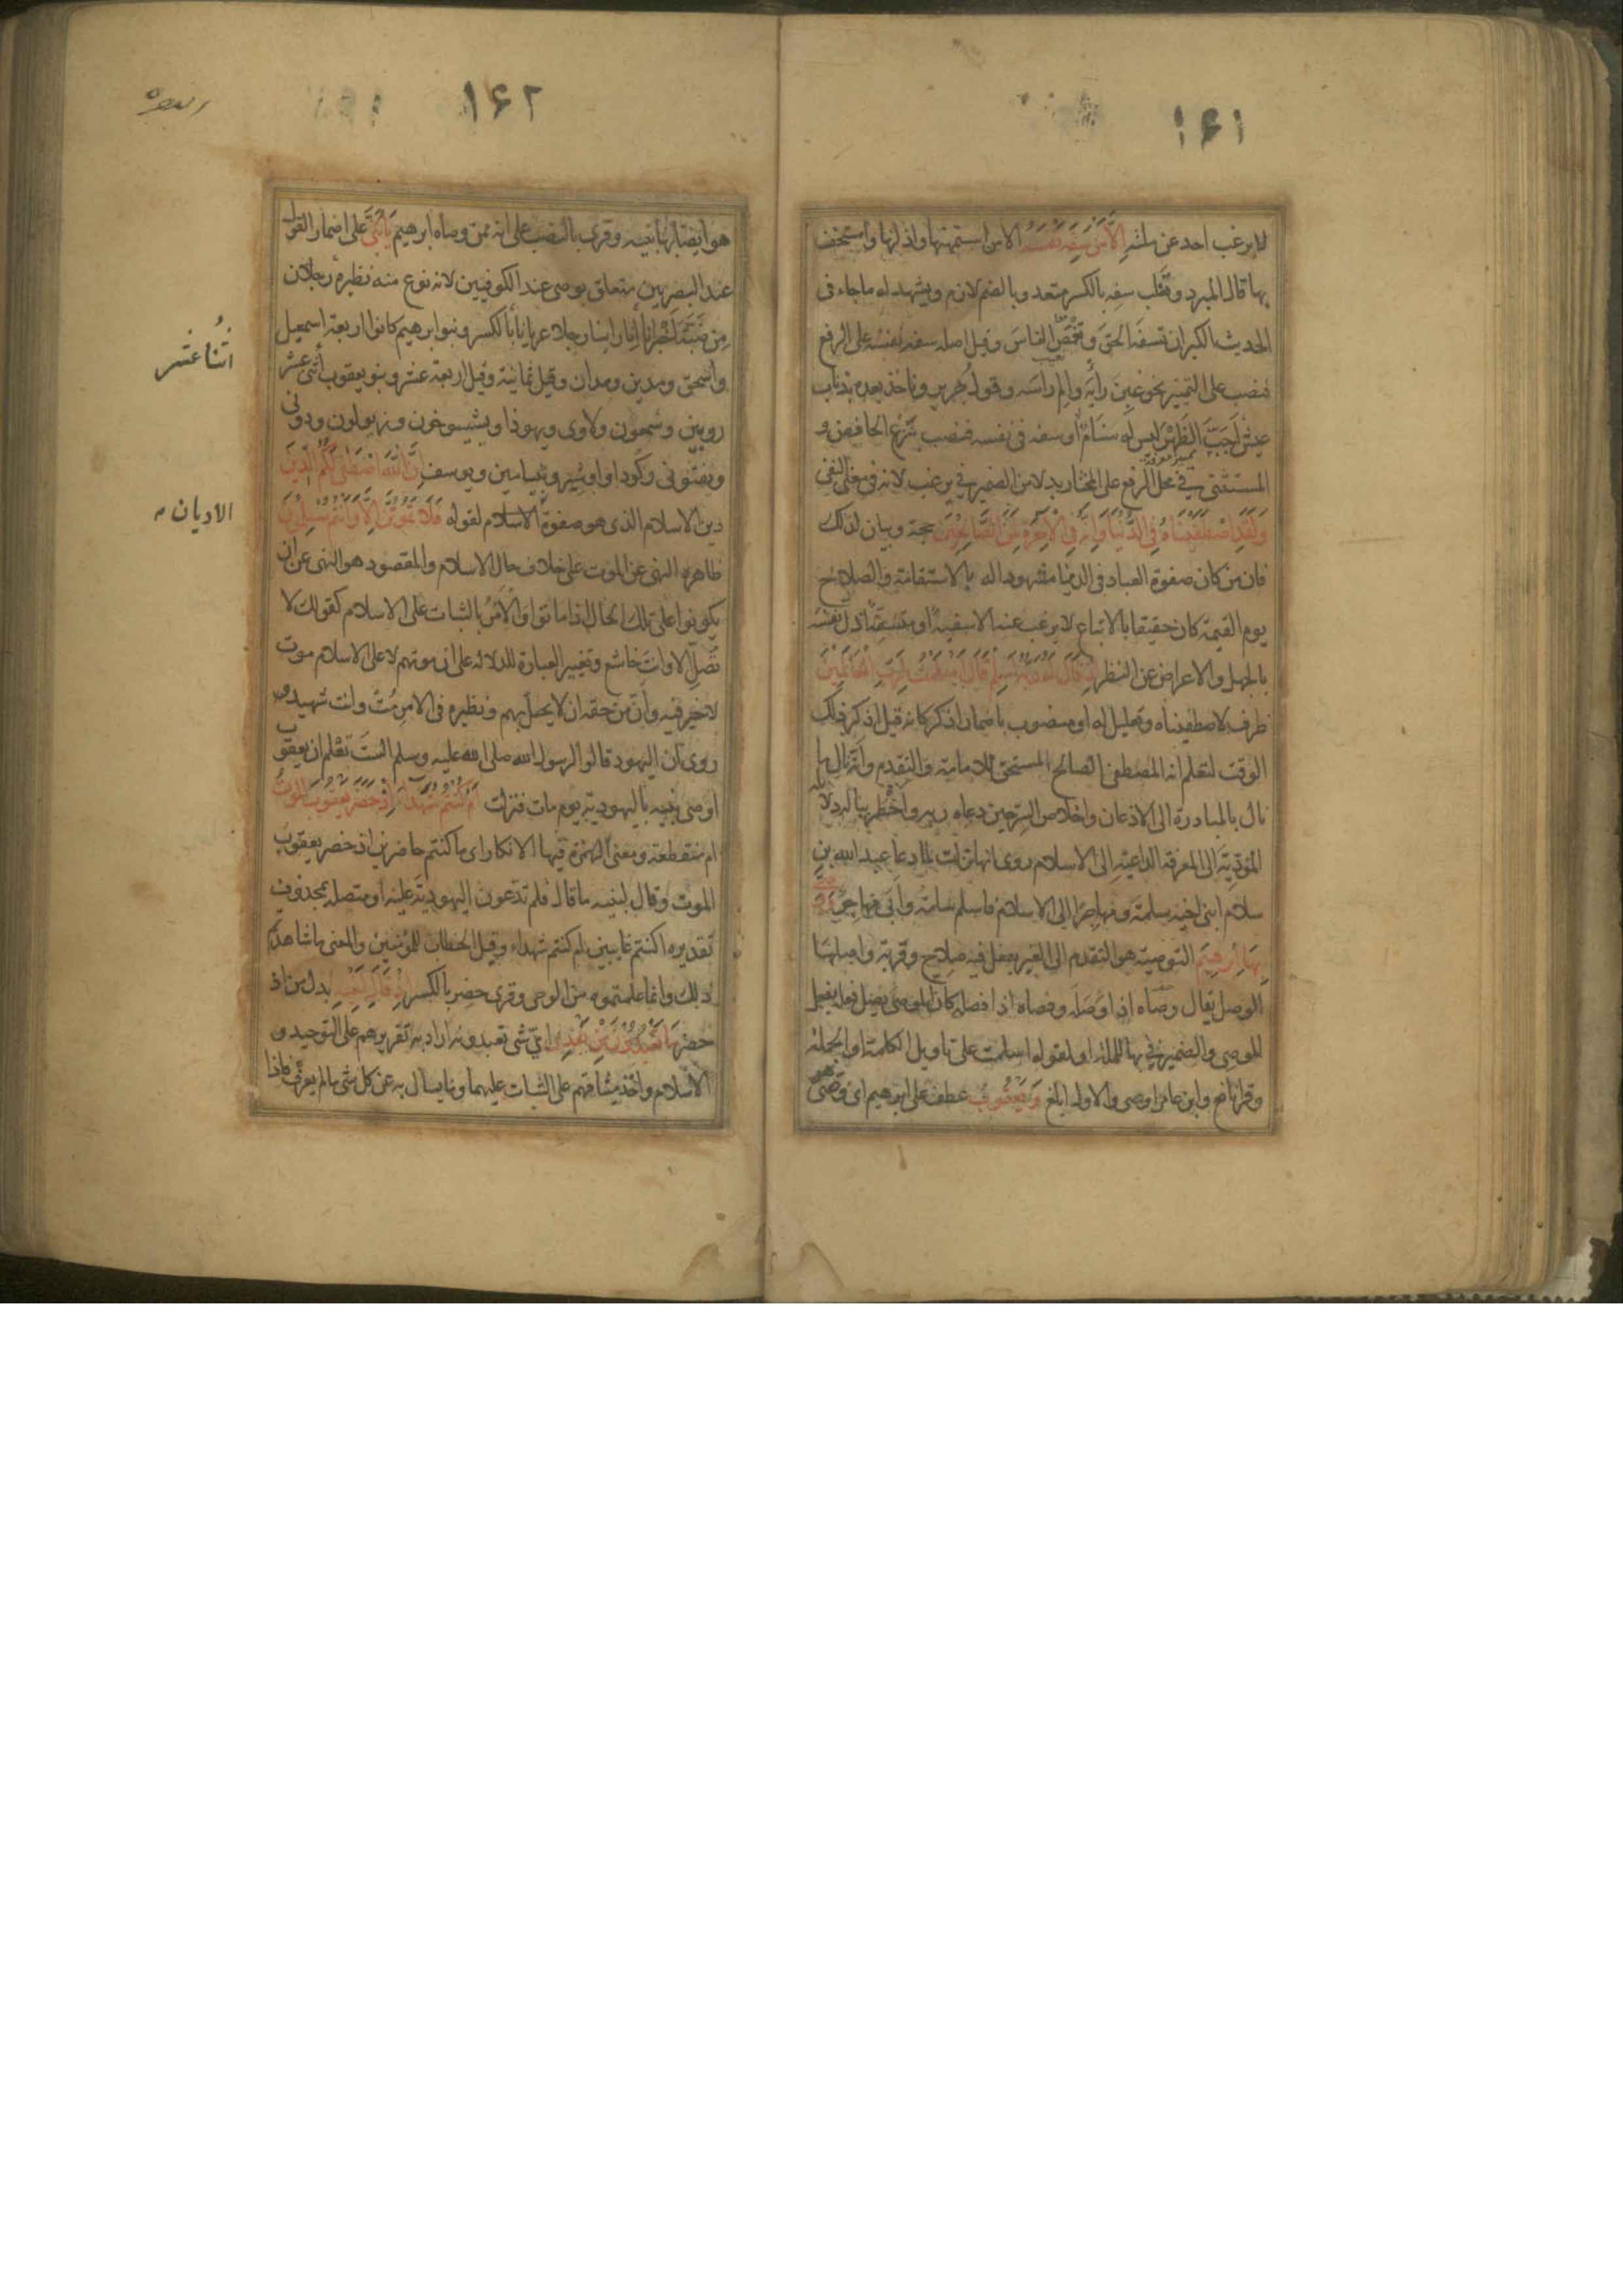 ١٦١
لا يرغب احد عن ملته الا من سفه نفسه الا من استمهنها واذلها واستخف
بها قال المبرد وثعلب سفه بالكسر متعد وبالضم لازم ويشهد له ما جاء فى
الحديث الكبر ان تسفه الحق وتغمص الناس وقيل اصله سفه نفسه على الرفع
فنصب على التميز نحو غبن رأيه والم راسه وقول جرير وناخذ بعده بذناب
عيش اجب الظهر ليس له سنام او سفه فى نفسه فنصب بنزع الخافض و
المستثنى فى محل الرفع على المختار بدلا من الضمير فى يرغب لانه فى معنى النفى
ولقد اصطفيناه فى الدنيا وانه فى الآخرة لمن الصالحين حجة وبيان لذلك
فان من كان صفوة العباد فى الدنيا مشهودا له بالاستقامة والصلاح
يوم القيمة كان حقيقا بالاتباع لا يرغب عنه الا سفيه او متسفه اذل نفسه
بالجهل والاعراض عن النظر اذ قال له ربه اسلم قال اسلمت لرب العالمين
ظرف لاصطفيناه وتعليل له او منصوب باضمار اذكر كانه قيل اذكر ذلك
الوقت لتعلم انه المصطفى الصالح المستحق للامامة والتقدم وانه نال ما
نال بالمبادرة الى الاذعان واخلاص السر حين دعاه ربه واخطر بباله دلائله
المؤدية الى المعرفة الداعية الى الاسلام روى انها نزلت لما دعا عبد الله بن
سلام ابنى اخيه سلمة ومهاجرا الى الاسلام فاسلم سلمة وابى مهاجر ووصى
بها ابرهيم التوصية هو التقدم الى الغير بفعل فيه صلاح وقربة واصلها
الوصل يقال وصاه اذا وصله وفصاه اذا فصله كان الموصى يصل فعله بفعل
الموصى والضمير فى بها للملة او لقوله اسلمت على تاويل الكلمة او الجملة
وقرا نافع وابن عامر اوصى والاول ابلغ ويعقوب عطف على ابرهيم اى ووصى
١٦٢
هو ايضا بها بنيه وقرئ بالنصب على انه ممن وصاه ابرهيم يا بنى على اضمار القول
عند البصريين متعلق بوصى عند الكوفيين لانه نوع منه نظيره رجلان
من ضبة اخبرانا انا راينا رجلا عريانا بالكسر وبنو ابرهيم كانوا اربعة اسمعيل
واسحق ومدين ومدان وقيل ثمانية وقيل اربعة عشر وبنو يعقوب اثنى عشر
اثنا عشر
روبين وشمعون ولاوى ويهوذا ويشيسوخون وزبولون ودونى
وبفتونى وكودا واوشير وبنيامين ويوسف ان الله اصطفى لكم الدين
دين الاسلام الذى هو صفوة الاسلام لقوله فلا تموتن الا وانتم مسلمون
الاديان
ظاهره النهى عن الموت على خلاف حال الاسلام والمقصود هو النهى عن ان
يكونوا على تلك الحال اذا ماتوا والامر بالثبات على الاسلام كقولك لا
تصل الا وانت خاشع وتغيير العبارة للدلالة على ان موتهم لا على الاسلام موت
لا خير فيه وان من حقه ان لا يحل بهم ونظيره فى الامر مت وانت شهيد
روى ان اليهود قالوا لرسول الله صلى الله عليه وسلم الست تعلم ان يعقوب
اوصى بنيه باليهودية يوم مات فنزلت ام كنتم شهداء اذ حضر يعقوب الموت
ام منقطعة ومعنى الهمزة فيها الانكار اى ما كنتم حاضرين اذ حضر يعقوب
الموت وقال لبنيه ما قال فلم تدعون اليهودية عليه او متصلة بمحذوف
تقديره اكنتم غايبين ام كنتم شهداء وقيل الخطاب للمؤمنين والمعنى ما شاهدتم
ذلك وانما علمتموه من الوحى وقرئ حضر بالكسر اذ قال لبنيه بدل من اذ
حضر ما تعبدون من بعدى اى شى تعبدونه اراد به تقريرهم على التوحيد و
الاسلام واخذ ميثاقهم على الثبات عليهما وما يسال به عن كل شى ما لم يعرف فاذا